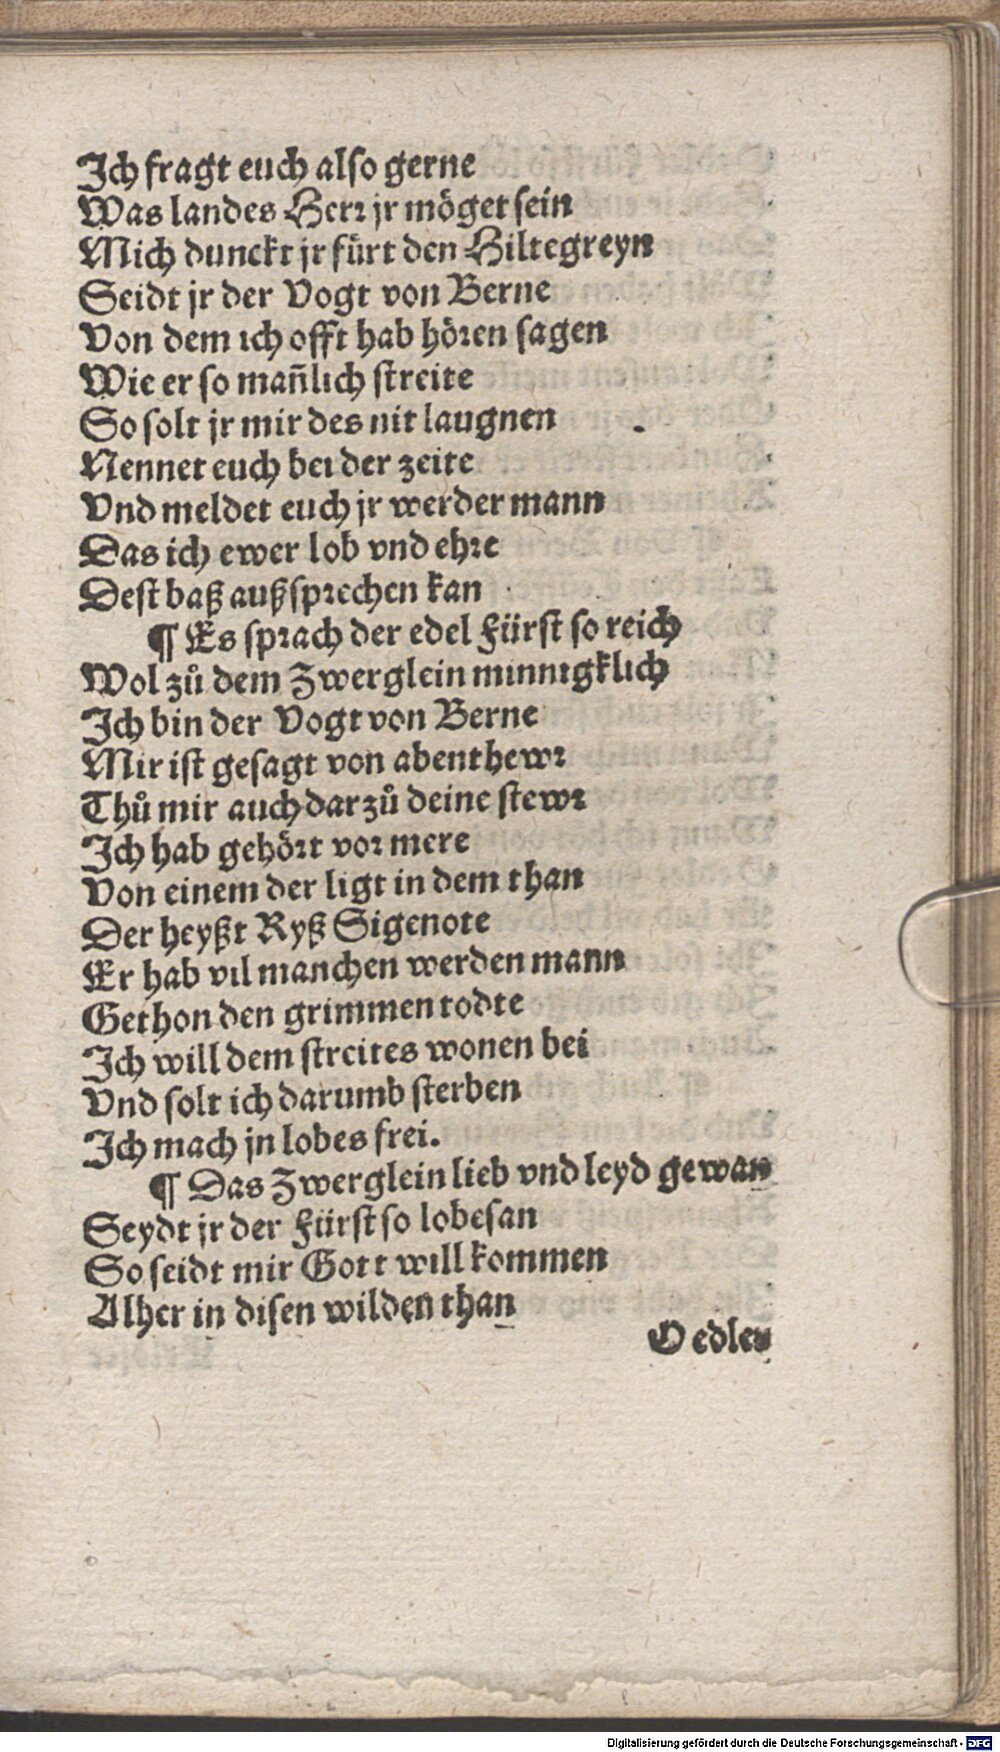 Ich fragt euch also gerne
Was landes Herr jr möget sein
Mich dunckt jr fürt den Hiltegreyn
Seidt jr der Vogt von Berne
Von dem ich offt hab hören sagen
Wie er so mañlich streite
So solt jr mir des nit laugnen
Nennet euch bei der zeite
Vnd meldet euch jr werder mann
Das ich ewer lob vnd ehre
Dest baß außsprechen kan
¶ Es sprach der edel Fürst so reich
Wol zů dem Zwerglein minnigklich
Ich bin der Vogt von Berne
Mir ist gesagt von abenthewr
Thů mir auch darzů deine stewr
Ich hab gehört vor mere
Von einem der ligt in dem than
Der heyßt Ryß Sigenote
Er hab vil manchen werden mann
Gethon den grimmen todte
Ich will dem streites wonen bei
Vnd solt ich darumb sterben
Ich mach jn lobes frei.
¶ Das Zwerglein lieb vnd leyd gewan
Seydt jr der Fürst so lobesan
So seidt mir Gott willkommen
Alher in disen wilden than
O edler
Digitalisierung gefördert durch die Deutsche Forschungsgemeinschaft - DFG